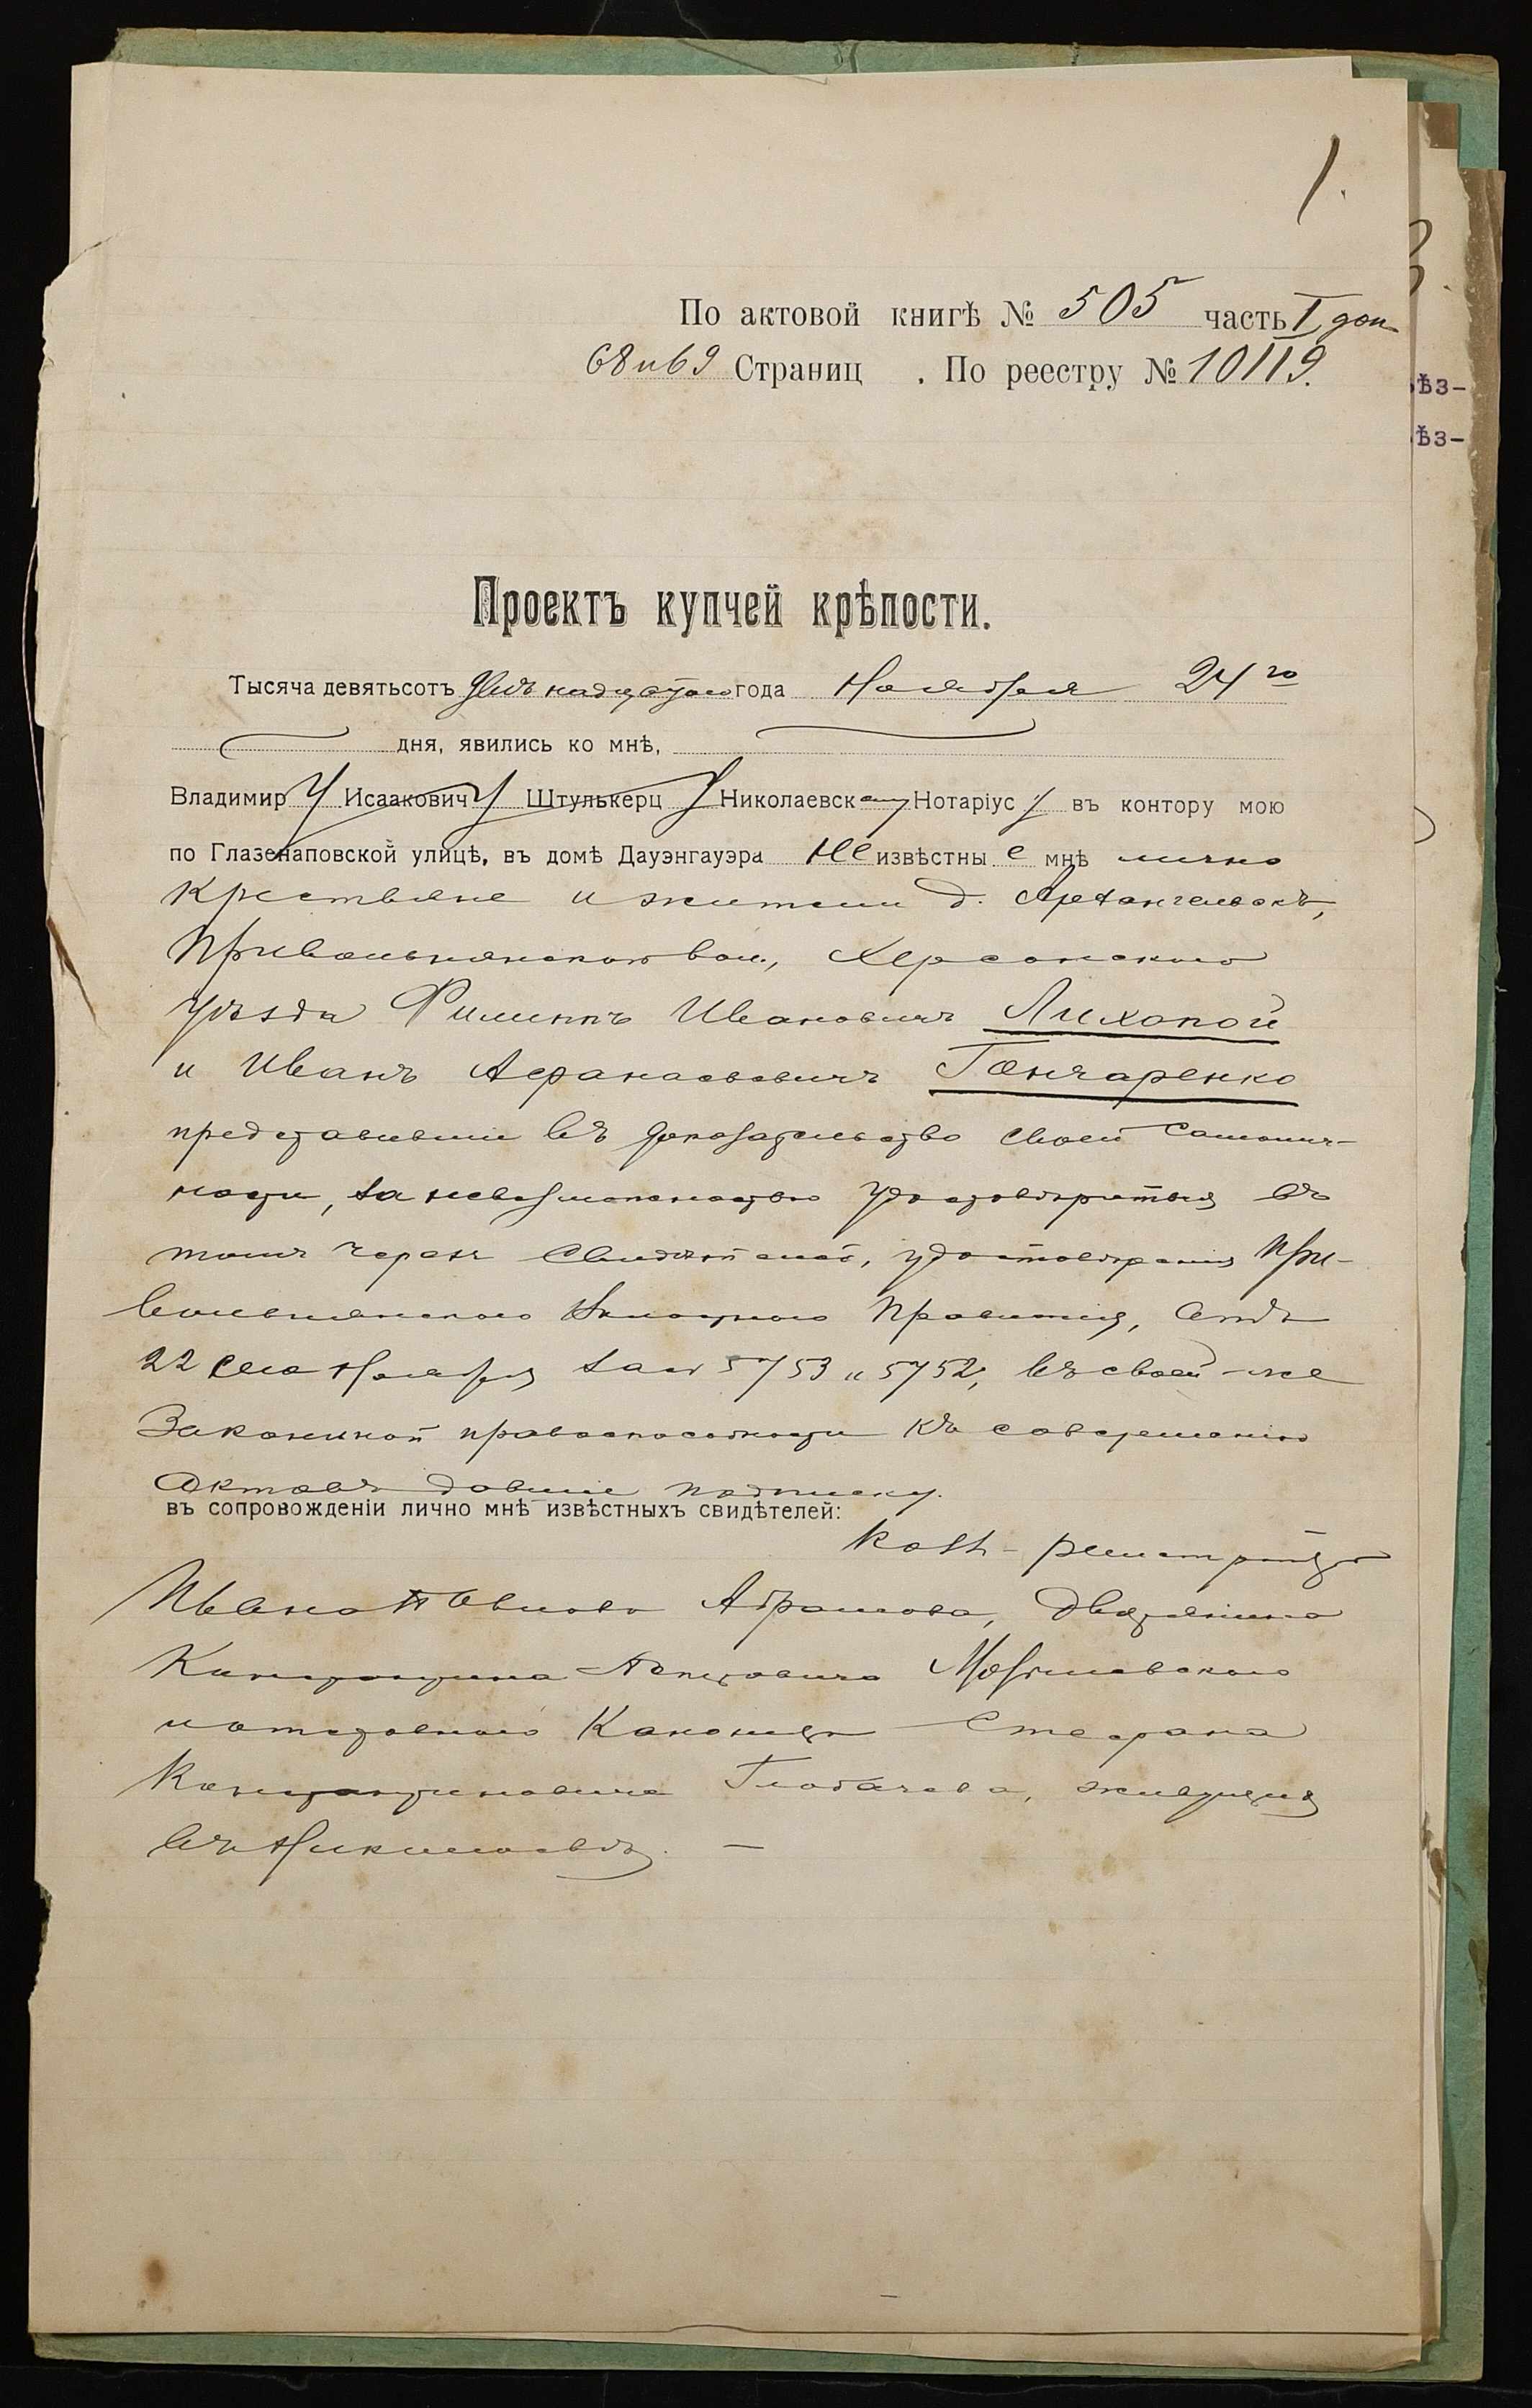 1.
По актовой книгѣ № 505 часть I доп
68 и 69 Страниц . По реестру № 10119.
Проектъ купчей крѣпости.
Тысяча девятьсотъ двѣнадцатаго года Ноября 24го
дня, явились ко мнѣ,
Владимир у Исаакович у Штулькерц у Николаевск ому Нотаріус у въ контору мою
по Глазенаповской улицѣ, въ домѣ Дауэнгауэра не извѣстны е мнѣ лично
крестьяне и жители д. Архангельск,
Привольнянской вол., Херсонского
уѣзда Филиппъ Ивановичъ Лихопой
и Иванъ Афанасьевичъ Гончаренко
представившіе въ доказательство своей самолич-
ности, за невозможностью удостовѣриться въ
томъ через свидѣтелей, удостовѣренія При-
вольнянского Волостного Правленія, отъ
22 сего Ноября за № 5753 и 5752, въ своей-же
законной правоспособности къ совершенію
актовъ давшіе подписку.
въ сопровожденіи лично мнѣ извѣстныхъ свидѣтелей:
Колл-регистратора
Ивана Абрамова, дворянина
Константина
и отставного Степана
Константиновича Глобачева, живущихъ
въ Николаевѣ. —
ѣз-
ѣз-